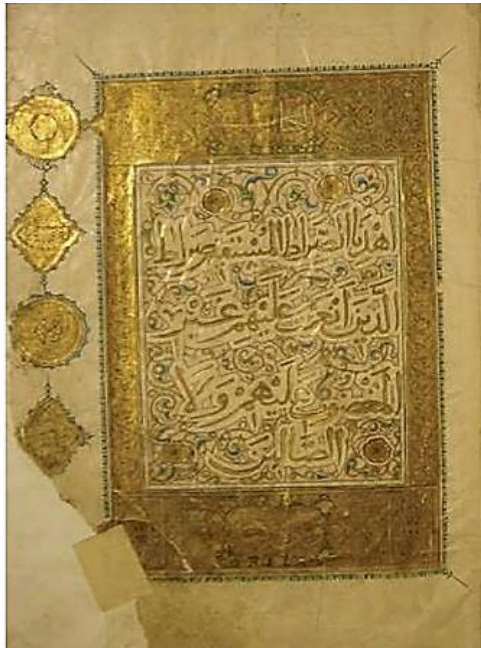 اهدنا الصراط المستقيم صراط
الذين انعمت عليهم غير
المغضوب عليهم ولا
الضالين